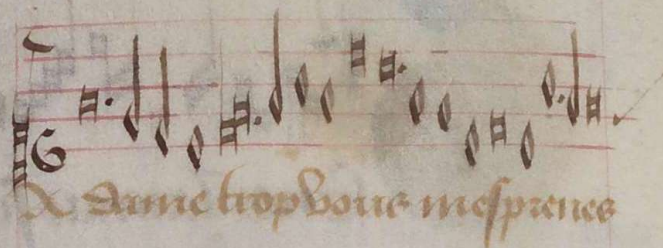 A dame trop vous mesprenes